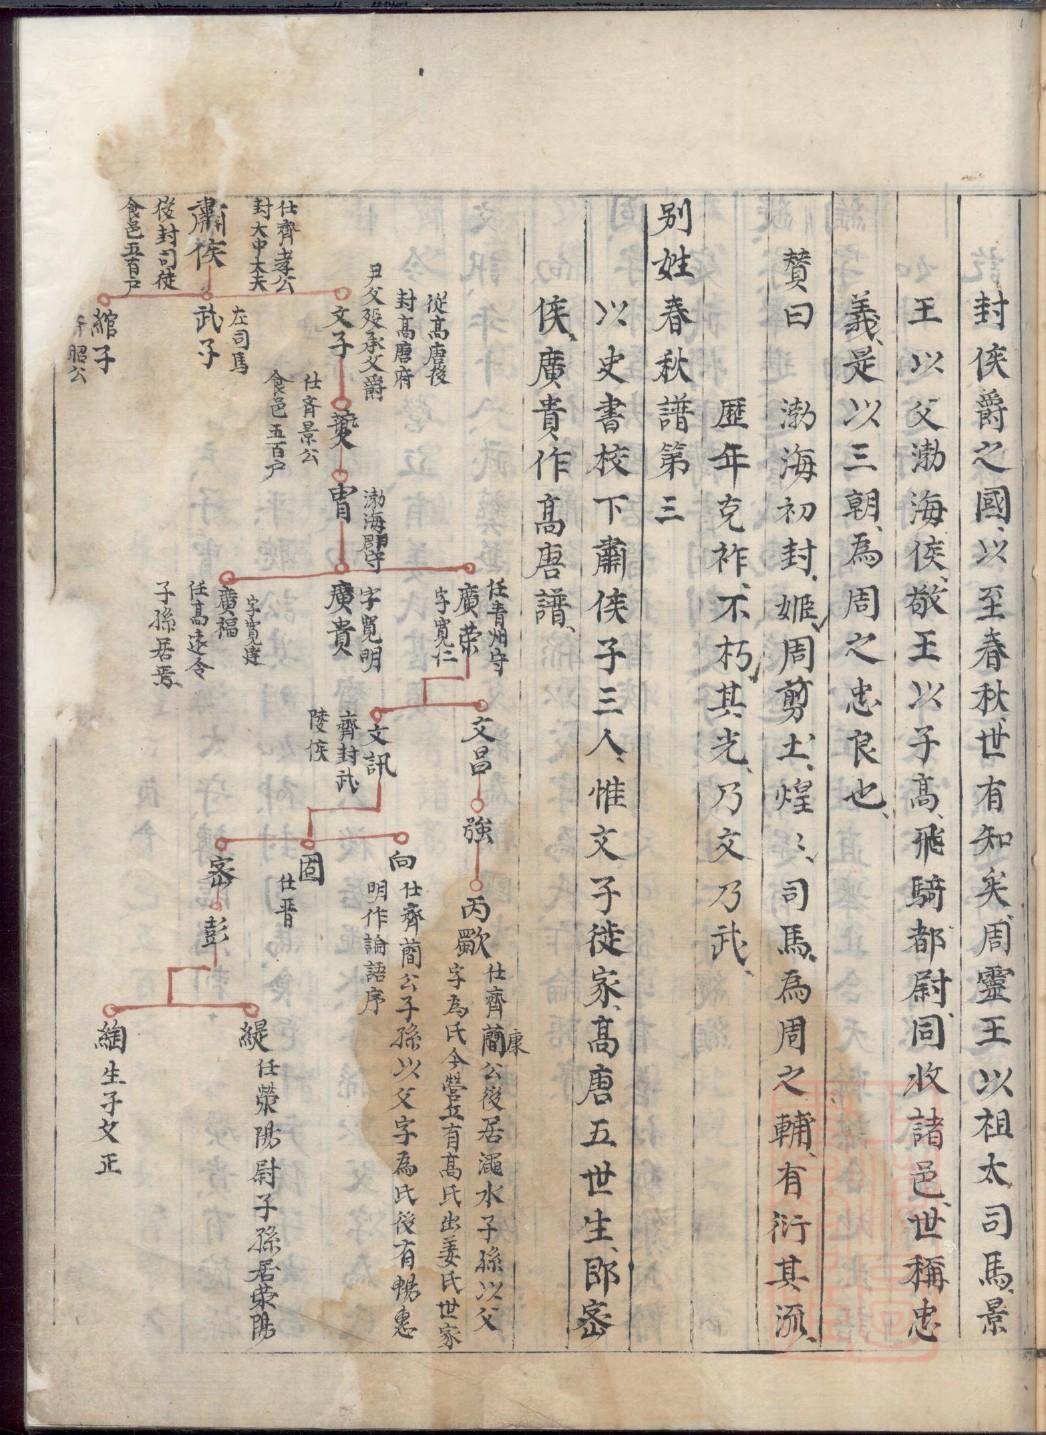 封侯爵之國以至春秋世有知矣周靈王以祖太司馬景
王以父渤海侯敬王以子髙飛騎都尉同收諸邑世稱忠
義是以三朝為周之忠良也
賛曰 渤海初封姬周剪土煌〻司馬為周之輔有衍其派
歷年克祚不朽其光乃文乃武
别姓春秋譜第三
以史書校下肅侯子三人惟文子徙家髙唐五世生郎宻
侯廣貴作髙唐譜
肅侯
仕齊孝公
封大中大夫
後封司徒
食邑五百户
文子
從髙唐後
封髙唐府
父殁承父爵
武子
左司馬
綰子
昭公
仕齊景公
食邑五百户
胄
渤海郡守
廣榮
任青州守
字寛仁
廣貴
字寛明
廣福
任髙逺令
子孫居焉
文昌
文訊
齊封武
陵侯
強
丙歜
仕齊簡公後居澠水子孫以父
康
字為氏今營丘有髙氏出姜氏世家
向
仕齊簡公子孫以父字為氏後有暢惠
明作論語序
固
仕晋
宻
彭
緹
任滎陽尉子孫居滎陽
綯
生子文正